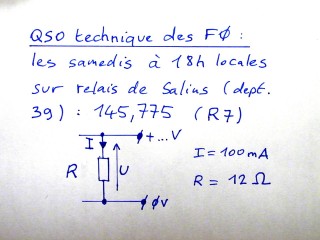 QSO technique des FØ :
les samedis à 18h locales
sur relais de Salins (dept.
39) : 145,775 (R7)
+...V
I
R
U
I = 100 mA
R = 12 Ω
ØV